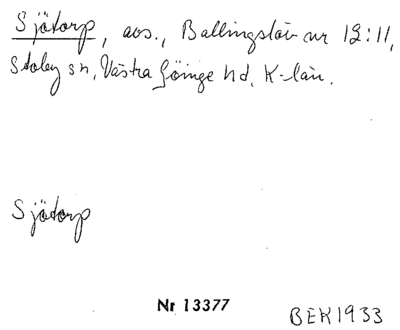 Sjötorp, avs., Ballingslöv nr 12:11,
Stoby sn, Västra Göinge hd, K-län.
Sjötorp
Nr 13377
BEK1933